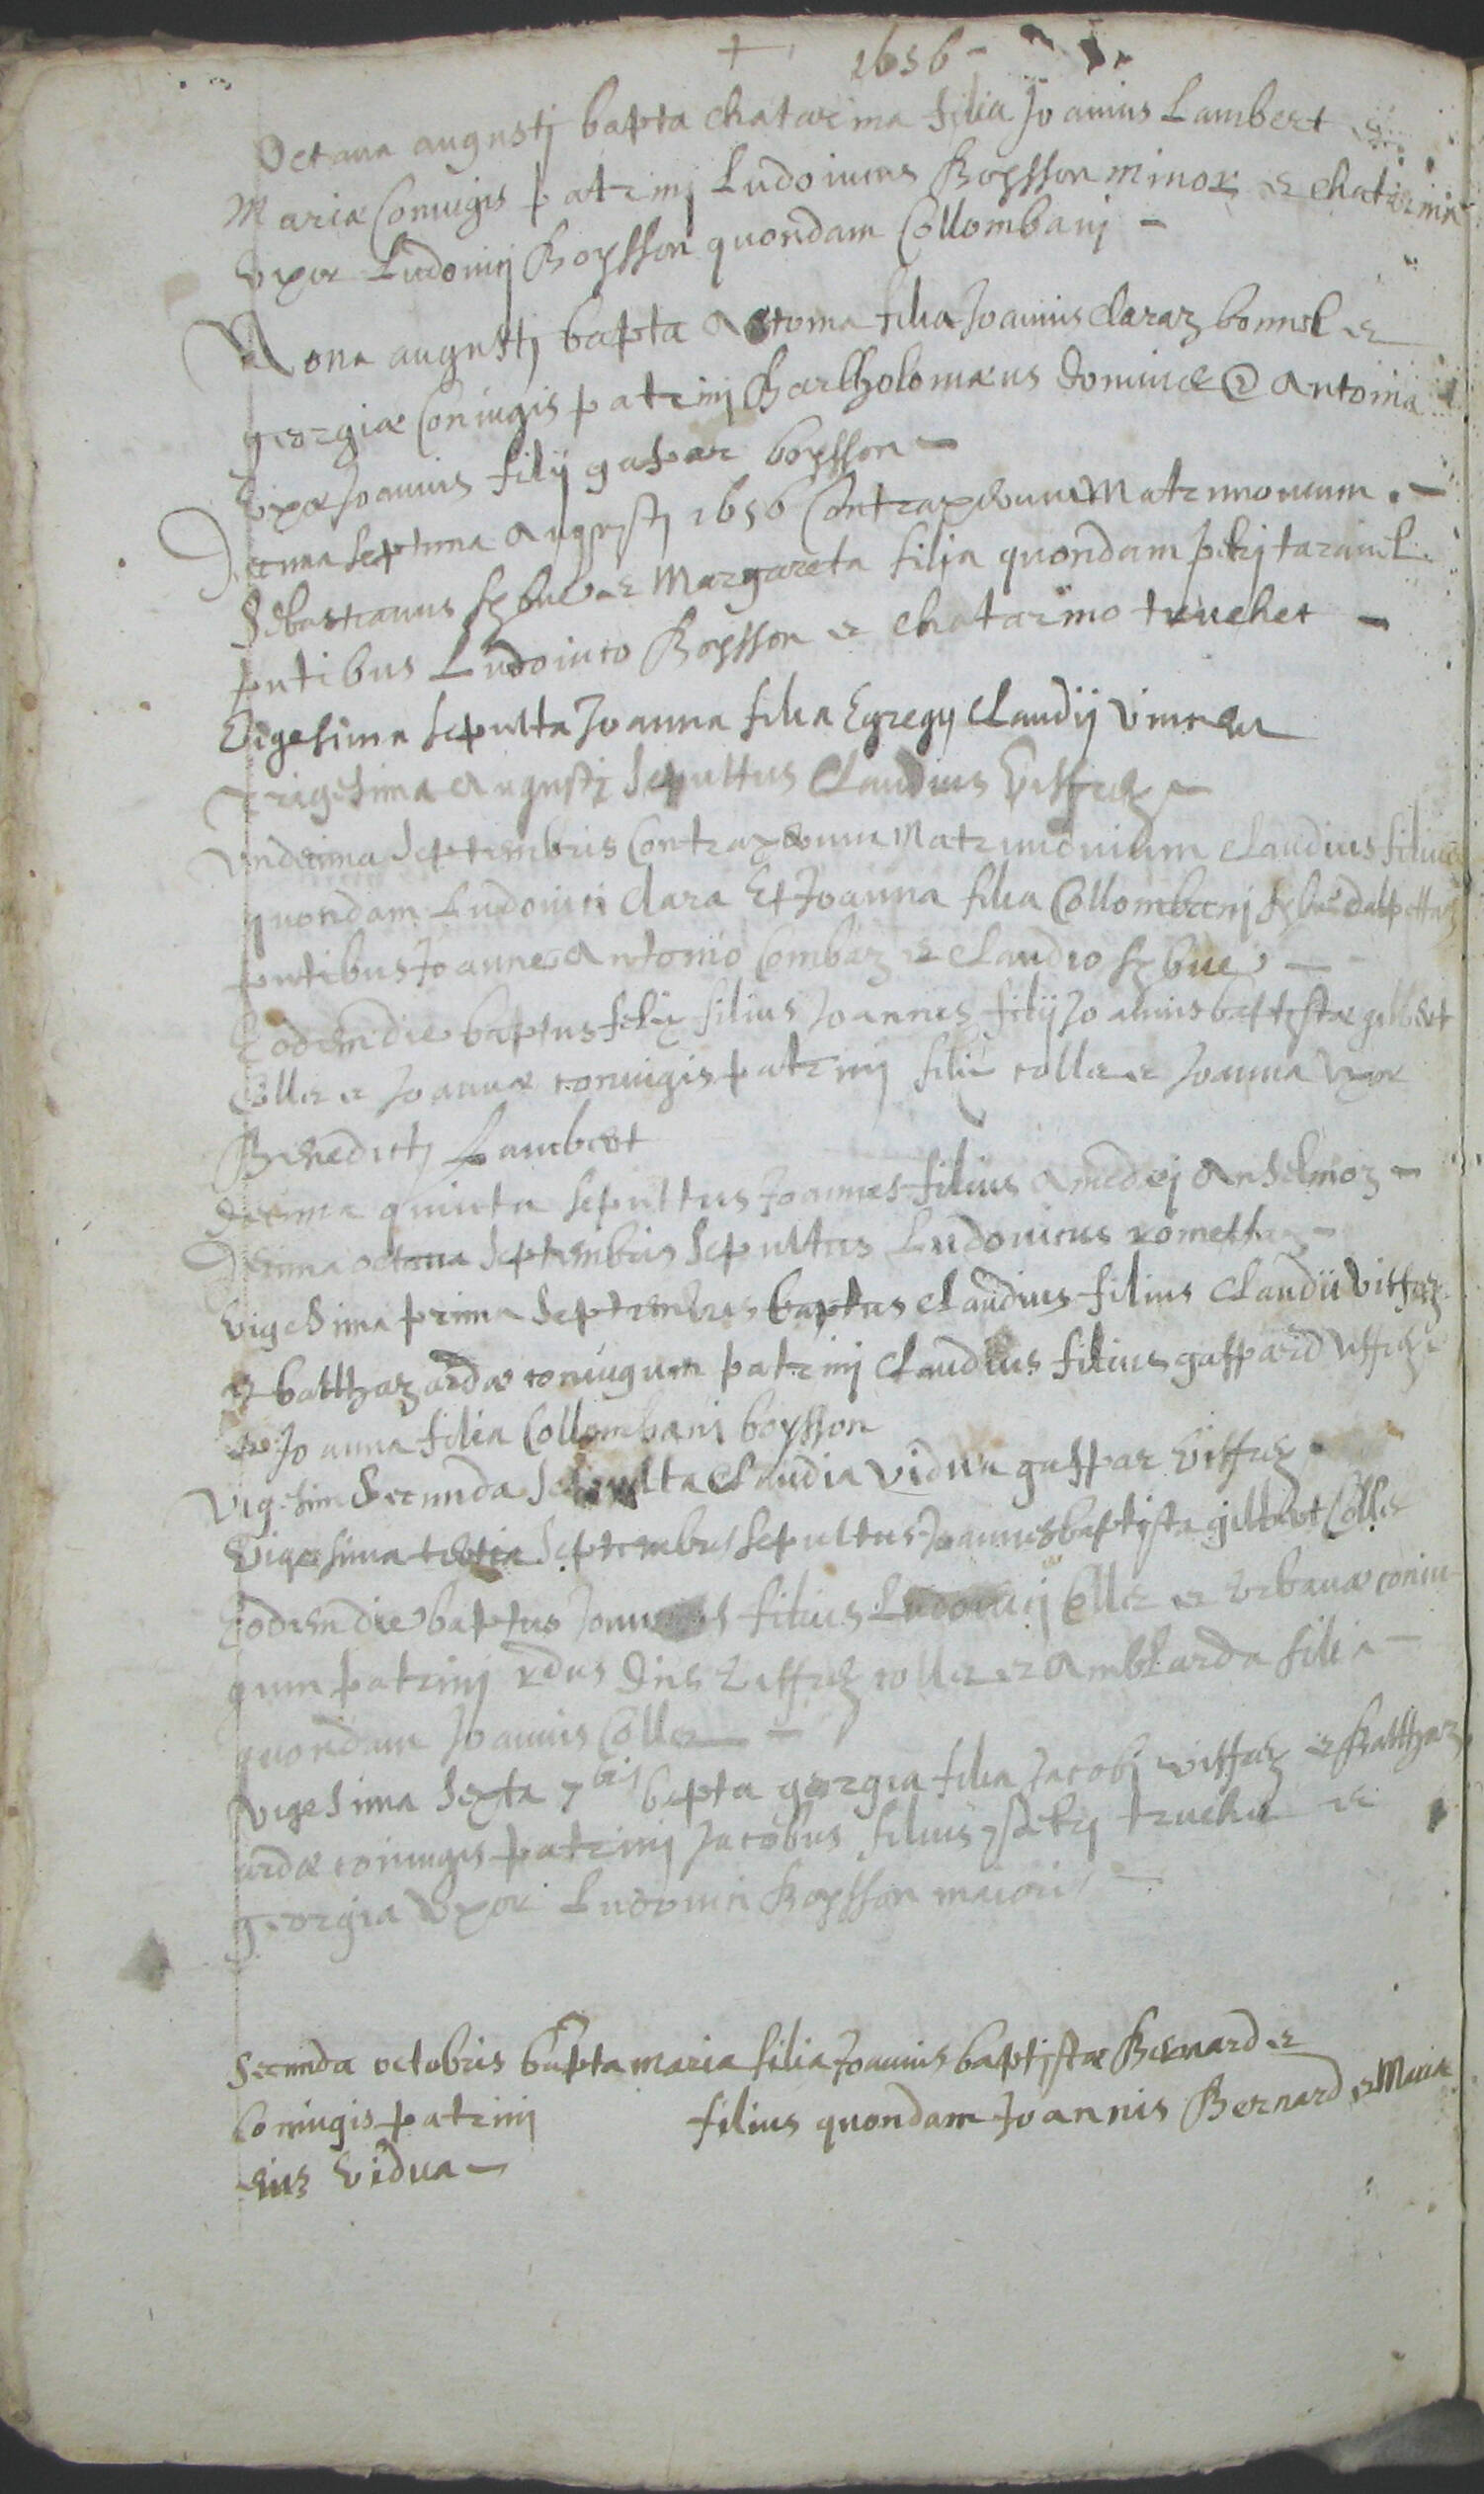 + 1656 -
Octava augustj bapta chatarina filia Joannis Lambert et
Mariæ Coniugis patrinj Ludovicus Boysson minor et chatarina
Uxor Ludovicj Boysson quondam Collombanj -
Nona augustj bapta Antonia filia Joannis claraz bonnel et
georgiæ Coniugis patrinj Bartholomæus dominice et Antonia
Uxor Joannis filij gaspar boysson -
Decima septima Augustj 1656 Contraxerunt Matrimonium . -
Sebastianus et Margareta filia quondam petrj taravel
pntibus Ludovico Boysson et chatarino truchet -
Vigesima sepulta Joanna filia Egregij Claudij
Trigesima Augustj sepultus Claudius Viffrey -
Undecima Septembris Contraxerunt Matrimonium Claudius filius
quondam Ludovici clara Et Joanna filia Collombanj
pntibus Joanne Antonio Combaz et Claudio -
Eodem die baptus felix filius Joannis filij Joannis baptistæ gilbert
Coller et Joannæ coniugis patrinj felix coller et Joanna uxor
Benedictj Lambert
Decima quinta sepultus Joannes filius Amedej Anselmoz -
Decima octava Septembris sepultus Ludovicus romettaz -
Vigesima prima Septembris baptus Claudius filius Claudij Viffrey
et balthazardæ coniugum patrinj Claudius filius gaspard Viffrey
et Joanna filia Collombani boysson
Vigesim Secunda Sepulta Claudia vidua gaspar Viffrey .
Vigesima tertia Septembris sepultus Joannes baptista gilbert Coller
Eodem die baptus Joannes filius Ludovicj Coller et Urbanæ coniu
gum patrinj rdus dns Viffrey coller et Amblarda filia -
quondam Joannis Coller -
Vigesima Sexta 7bris bapta georgia filia Jacobj Viffrey et Balthaz
ardæ coniugis patrinj Jacobus filius petrj truchet et
georgia Uxor Ludovici Boysson maioris -
Secunda octobris bapta maria filia Joannis baptistæ Bernard et
Coniugis patrinj filius quondam Joannis Bernard et Maria
eius vidua -